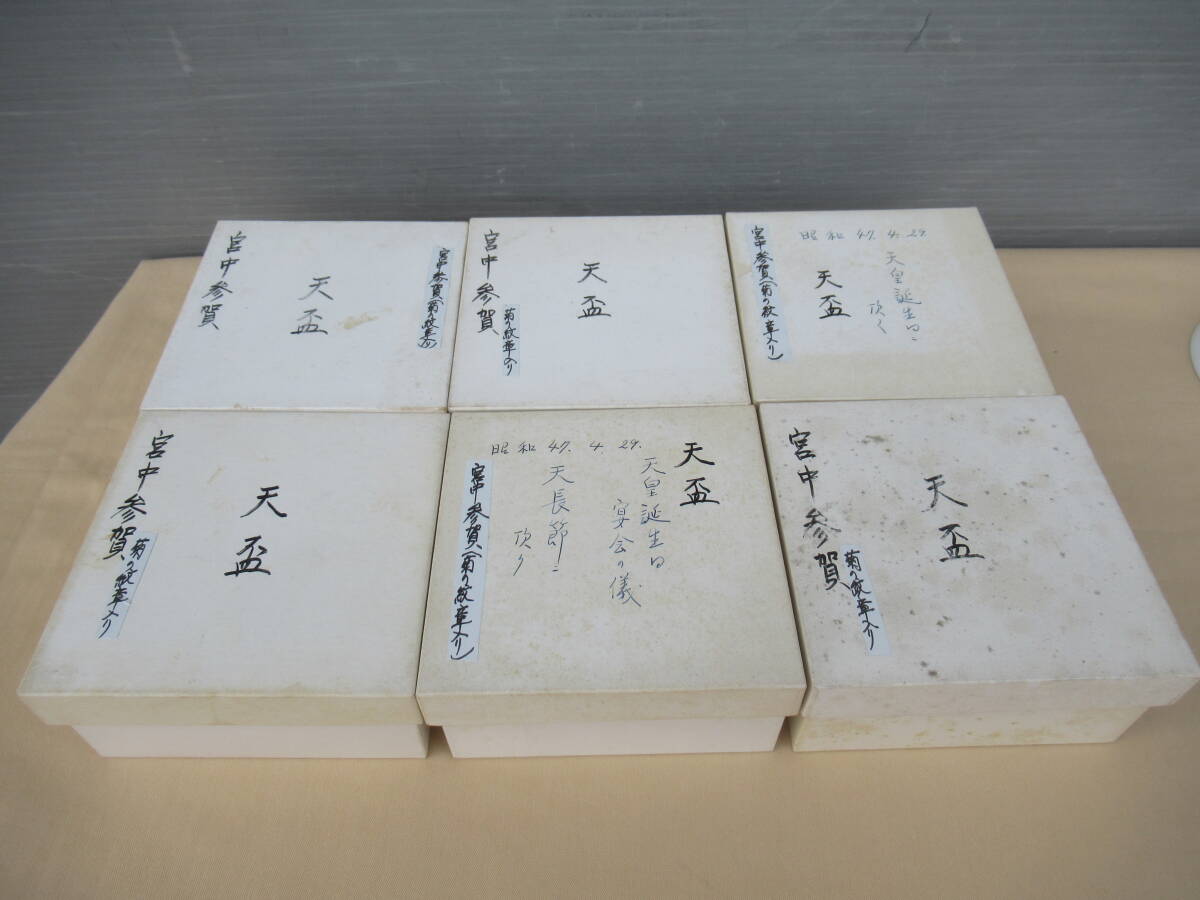 宮中参賀
天盃
宮中参賀(菊の紋章入り)
宮中参賀
菊の紋章入り
天盃
宮中参賀(菊の紋章入り)
昭和47.4.29.
天盃
天皇誕生日ニ
頂く
宮中参賀
菊の紋章入り
天盃
昭和47.4.29.
天盃
天皇誕生日
宴会の儀
天長節ニ
頂く
宮中参賀(菊の紋章入り)
宮中参賀
菊の紋章入り
天盃